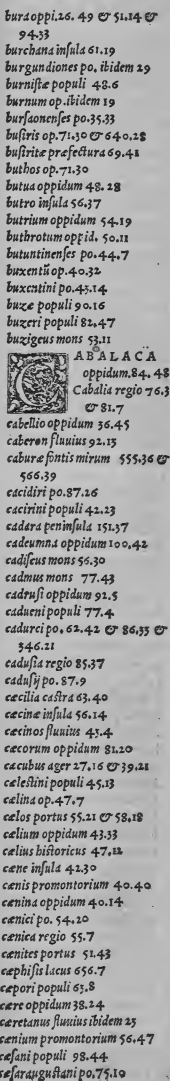 bura oppi.26. 49 & 51.14 &
94.33
burchana insula 61.19
burgundiones po. ibidem 29
burnistæ populi 48.6
burnum op.ibidem 19
bursaonenses po.35.33
busiris op.71.30 & 640.28
busiritæ præfectura 69.41
buthos op.71.30
butua oppidum 48. 28
butro insula 56.37
butrium oppidum 54.19
buthrotum oppid. 50.11
butuntinenses po.44.7
buxentū op.40.32
buxentini po.45.14
buzæ populi 90.16
buzeri populi 82.47
buzigeus mons 53.11
CABALACA
oppidum.84. 48
Cabalia regio 76.3
& 81.7
cabellio oppidum 36.45
caberon fluuius 92.15
caburæ fontis mirum 555.36 &
566.39
cacidiri po.87.26
cacirini populi 42.23
cadara peninsula 151.37
cadeumna oppidum 100.42
cadiscus mons 56.30
cadmus mons 77.43
cadrusi oppidum 92.5
cadueni populi 77.4
cadurci po. 62.42 & 86.35 &
346.21
cadusia regio 85.37
cadusij po.87.9
cæcilia castra 63.40
cæcinæ insula 56.14
cæcinos fluuius 43.4
cæcorum oppidum 81.20
cæcubus ager 27.16 & 39.21
cælestini populi 45.13
cælina op.47.7
cælos portus 55.21 & 58.18
cælium oppidum 43.33
cælius historicus 47.12
cæne insula 42.30
cænis promontorium 40.40
cænina oppidum 40.14
cænici po. 54.20
cænica regio 55.7
cænites portus 51.43
cæphisis lacus 656.7
cæpori populi 63.8
cære oppidum 38.24
cæretanus fluuius ibidem 25
cænium promontorium 56.47
cæsani populi 98.44
cæsaraugustani po.75.10